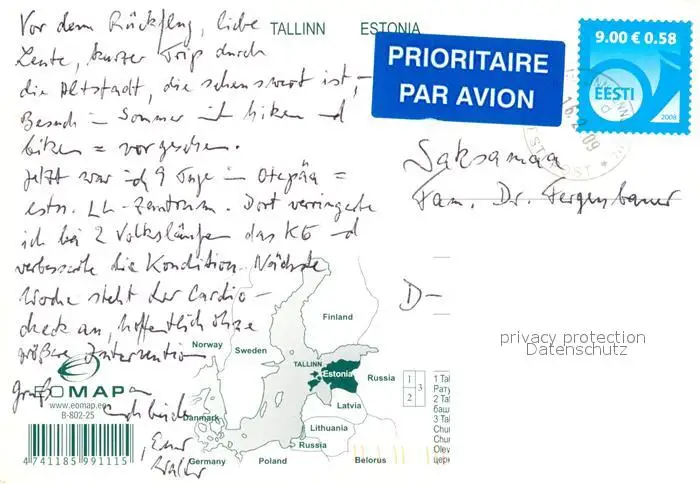 TALLINN ESTONIA
Vor dem Rückflug, liebe
Leute, kurzer Trip durch
die Altstadt, die sehenswert ist,
Besuch im Sommer mit hiken und
biken = vorgesehen.
Jetzt war ich 9 Tage in Otepää =
estn. LL-Zentrum. Dort verringerte
ich bei 2 Volksläufen das KG und
verbesserte die Kondition. Nächste
Woche steht der Cardio-
check an, hoffentlich ohne
größere Intervention
Euch beide
Euer
Walter
PRIORITAIRE
PAR AVION
9.00 € 0.58
EESTI
2008
16.2.09
Saksamaa
Fam. Dr. Fergenbauer
D-
privacy protection
Datenschutz
EOMAP
www.eomap.ee
B-802-25
4741185991115
Finland
Norway
Sweden
TALLINN
Estonia
Russia
Latvia
Danmark
Lithuania
Russia
Germany
Poland
Belorus
1
2
3
1 Tal
2 Tal
3 Tal